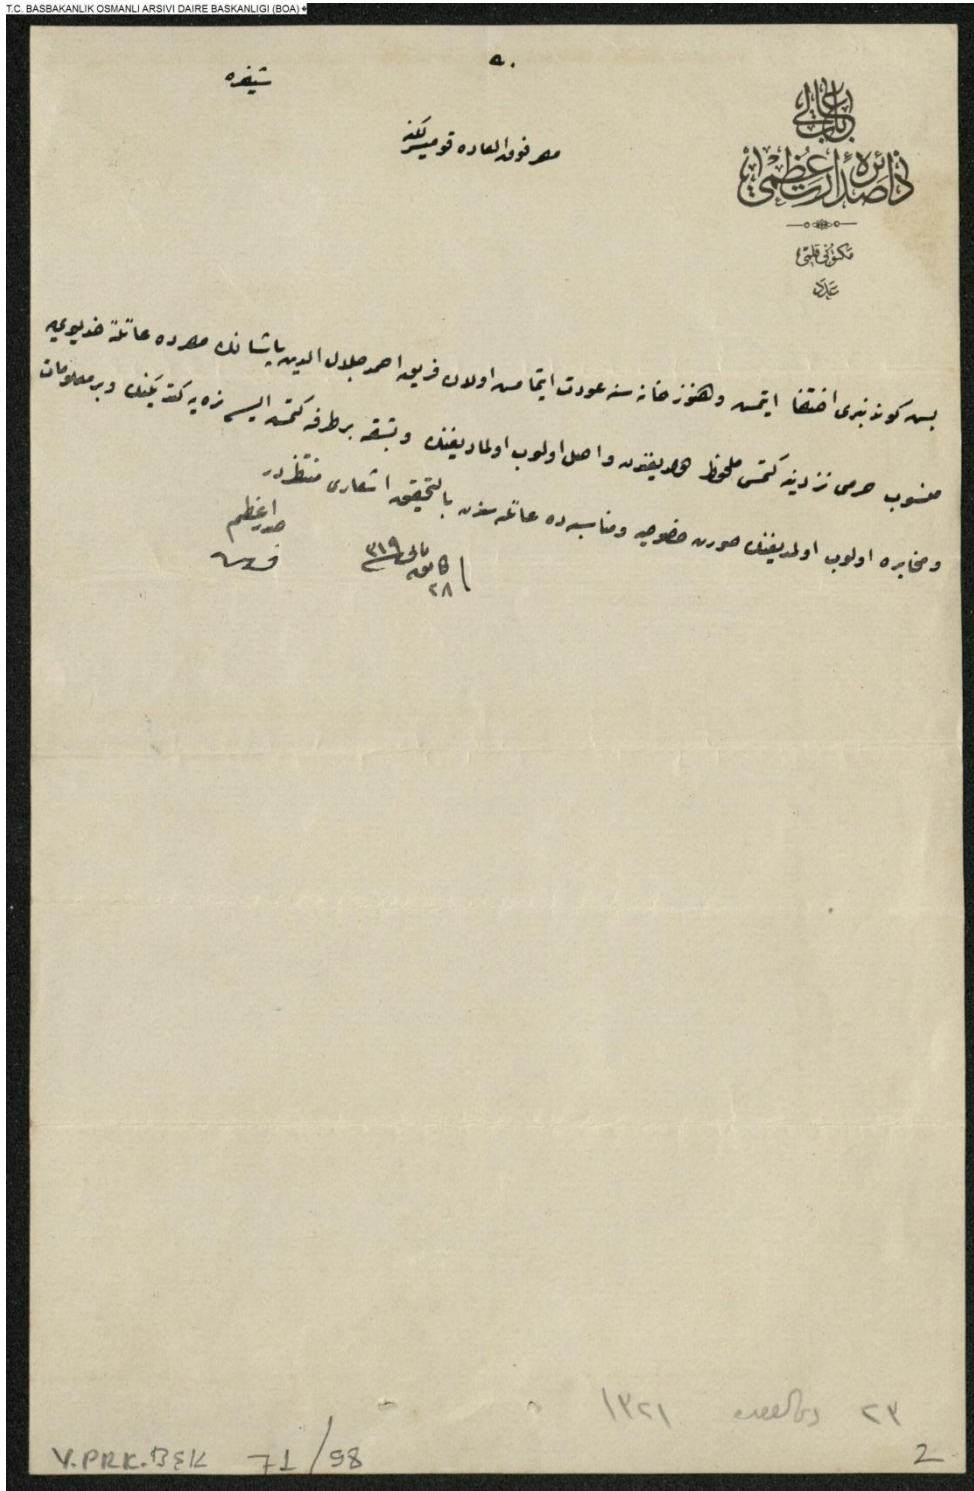 T.C. BASBAKANLIK OSMANLI ARSIVI DAIRE BASKANLIGI (BOA)
شيفره
باب عالى
دائرهٔ صدارت عظمى
مصر فوق العاده قوميسرلكنه
عدد
بش كوندنبرى اختفا ايتمش وهنوز خانه سنه عودت ايتمامش اولان فريق احمد جلال الدين پاشانك مصرده عائلهٔ خديويه
منسوب حرمى نزدينه كتمسى ملحوظ واصل اولوب اولمديغنك وبشقه بر طرفه كتمش ايسه نره يه كتديكنك وبر معلومات
ومخابره اولوب اولمديغنك صورت خصوصيه ومناسبه ده عائله سندن بالتحقيق اشعارى منتظردر
صدر اعظم
فريد
٢٨ ٣١٩
٢٣ ذى القعده ١٣٢١
Y.PRK.BŞK 71/98
2